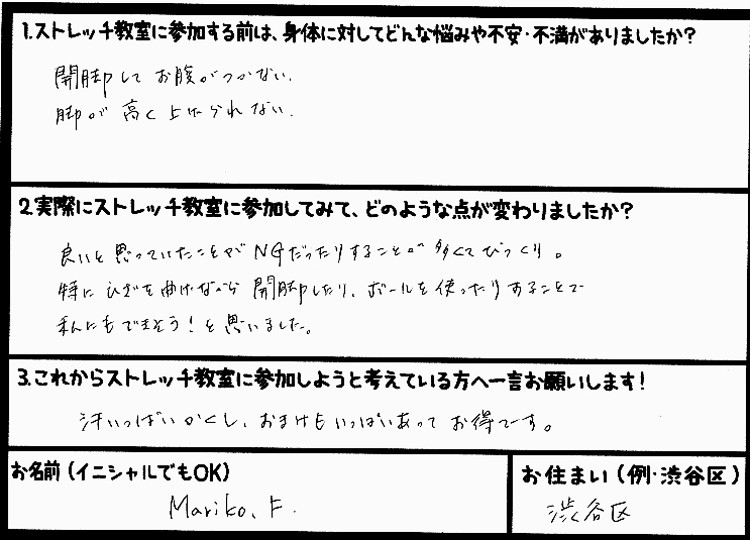 1.ストレッチ教室に参加する前は、身体に対してどんな悩みや不安・不満がありましたか?
開脚して お腹がつかない.
脚が 高く 上げられない.
2.実際にストレッチ教室に参加してみて、どのような点が変わりましたか?
良いと思っていたことがNGだったりすることが多くてびっくり。
特に ひざを曲げながら 開脚したり、ボールを使ったりすることで
私にもできそう!と思いました。
3.これからストレッチ教室に参加しようと考えている方へ一言お願いします!
汗いっぱいかくし、おまけもいっぱいあって お得です。
お名前(イニシャルでもOK)
Mariko、F.
お住まい(例・渋谷区)
渋谷区